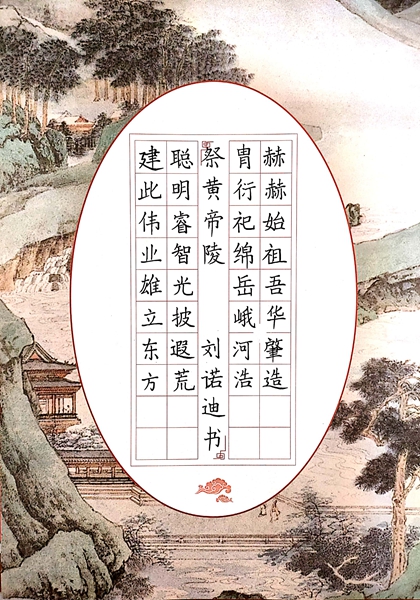 赫赫始祖吾华肇造
胄衍祀绵岳峨河浩
祭黄帝陵 刘诺迪书
聪明睿智光披遐荒
建此伟业雄立东方